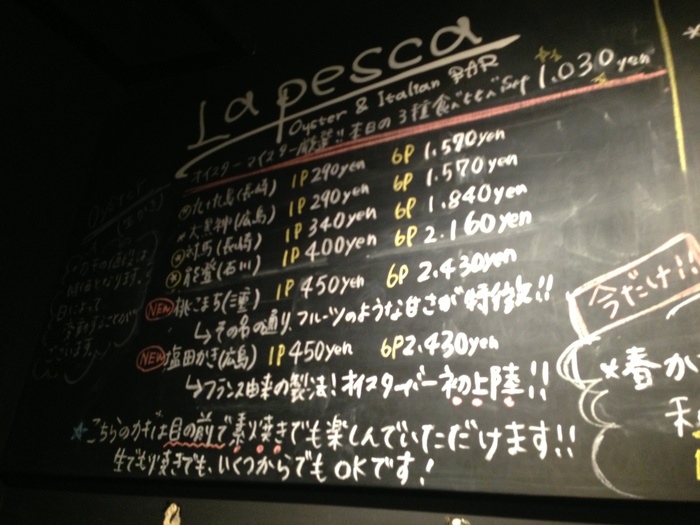 La pesca
Oyster & Italian BAR
オイスターマイスター厳選!!本日の3種食べくらべSet 1.030yen
九十九島(長崎) 1P 290yen 6P 1.570yen
大黒神(広島) 1P 290yen 6P 1.570yen
対馬(長崎) 1P 340yen 6P 1.840yen
能登(石川) 1P 400yen 6P 2.160yen
NEW 桃こまち(三重) 1P 450yen 6P 2.430yen
↳その名の通り、フルーツのような甘さが特徴!!
NEW 塩田かき(広島) 1P 450yen 6P 2.430yen
↳フランス由来の製法!オイスターバー初上陸!!
★こちらのカキは目の前で素焼きでも楽しんでいただけます!!
生でも焼きでも、いくつからでもOKです!
今だけ!!
*春か